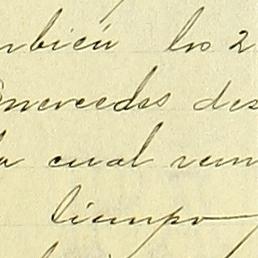 mbién los 2
mercedes des
la cual rem
tiempo